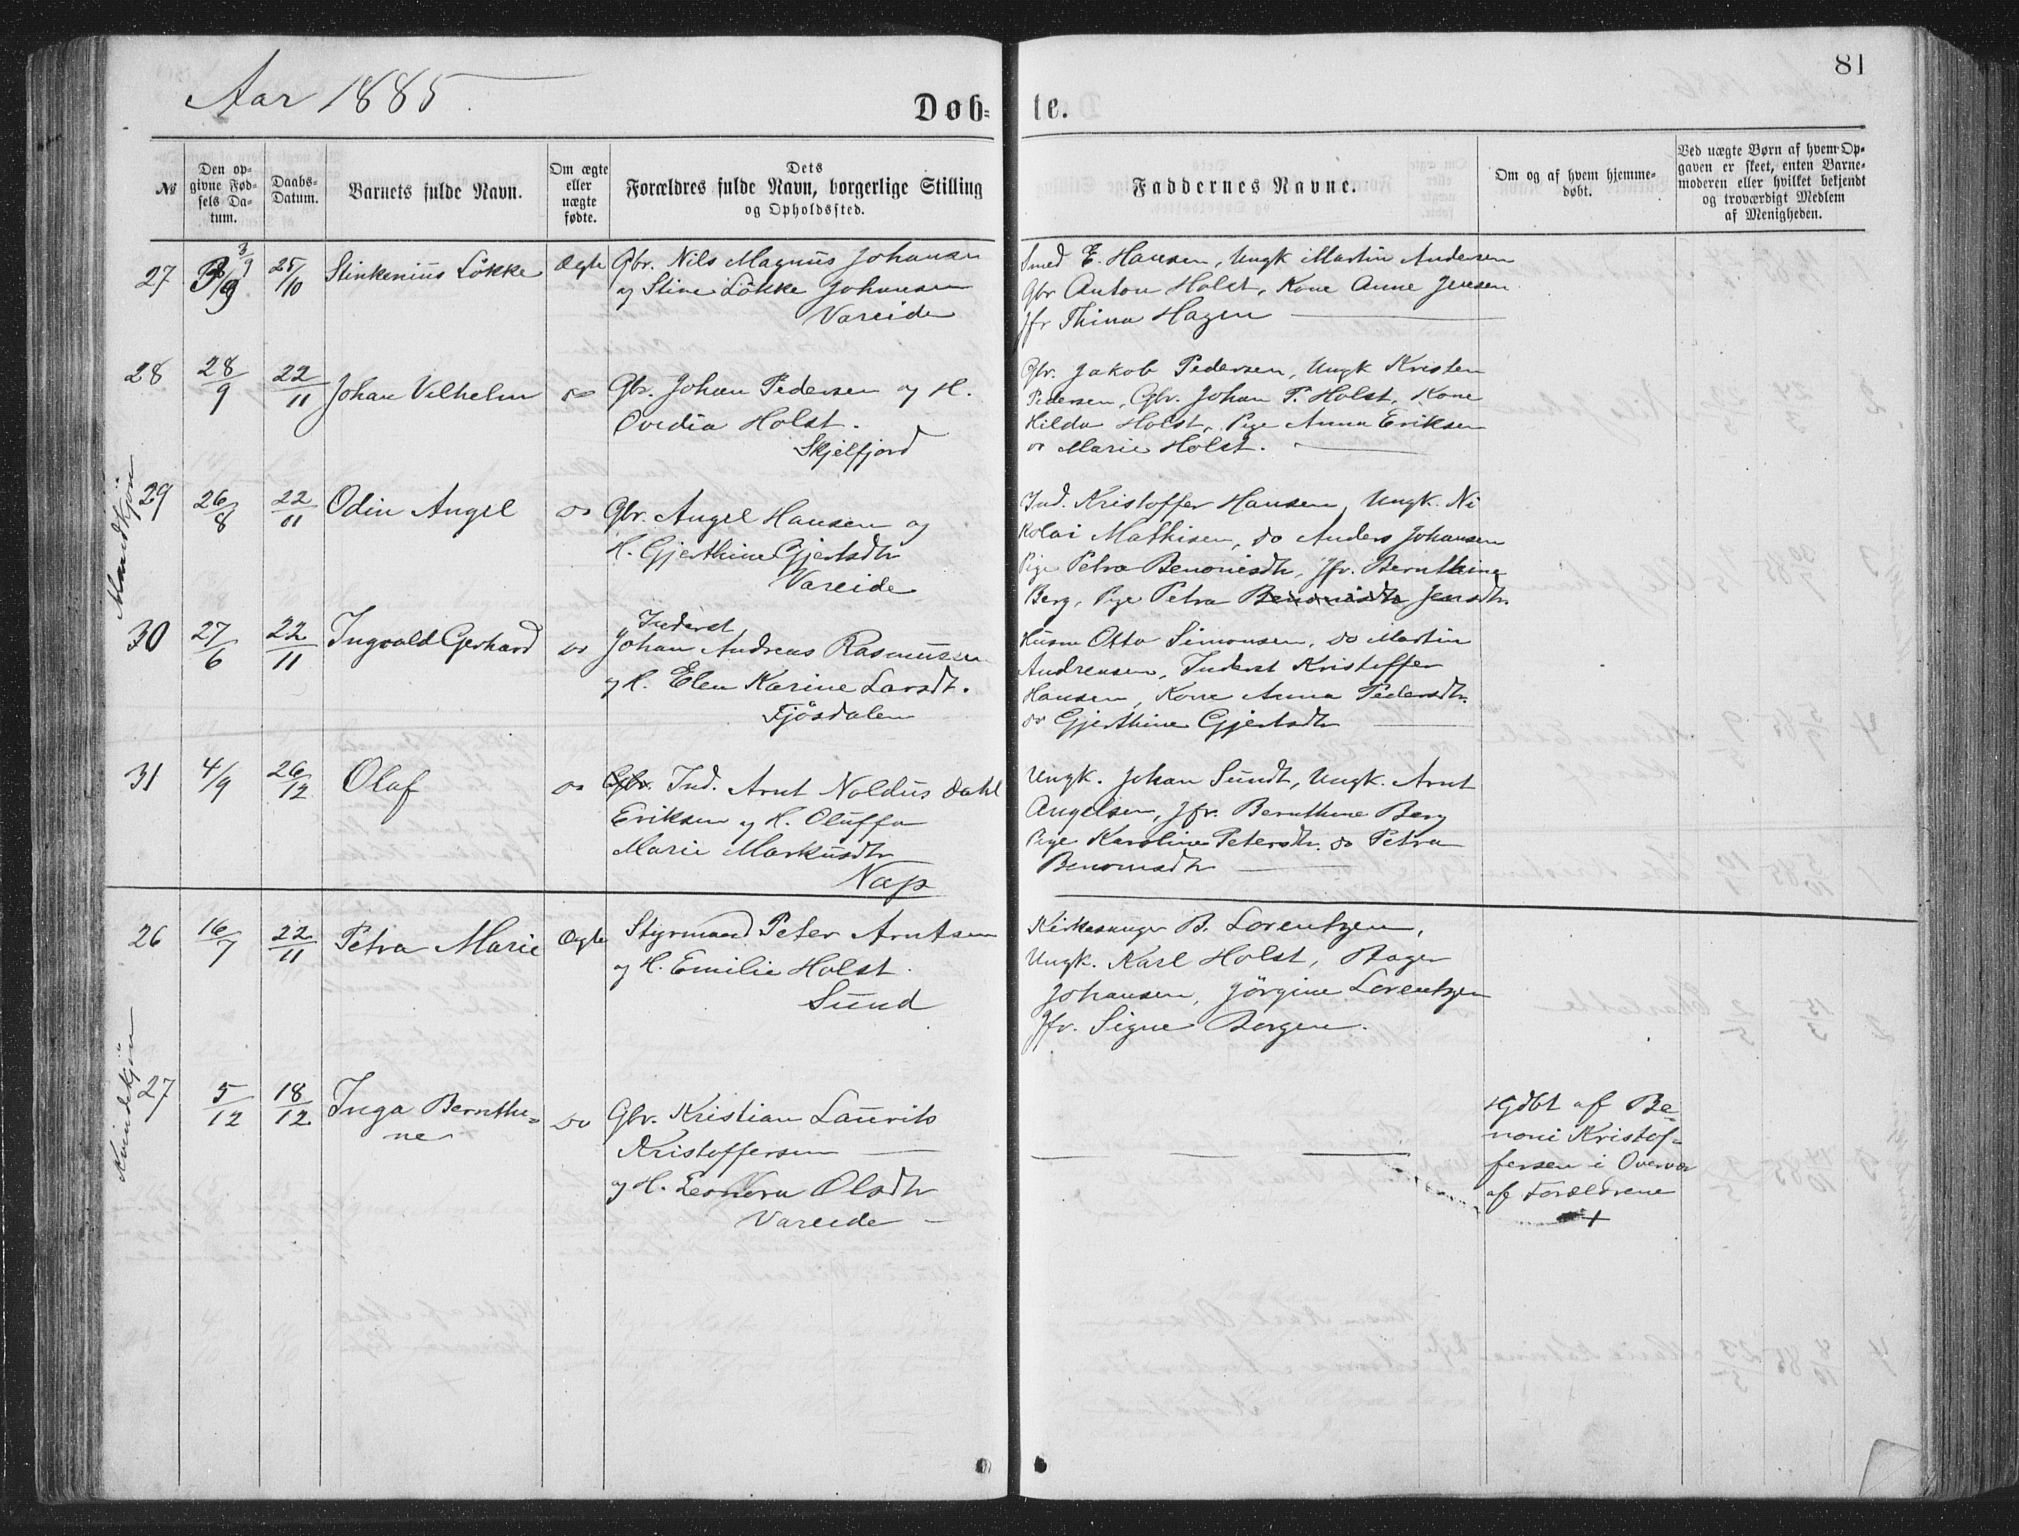 Aar 1885
81
Døb-
te.
№
Den op-
givne Fød-
sels Da-
tum.
Daabs-
Datum.
Barnets fulde Navn.
Om ægte
eller
uægte
fødte.
Dets
Forældres fulde Navn, borgerlige Stilling
og Opholdssted.
Faddernes Navne.
Om og af hvem hjemme-
døbt.
Ved uægte Børn af hvem Op-
gaven er skeet, enten Barne-
moderen eller hvilket bekjendt
og troværdigt Medlem
af Menigheden.
Mandkjøn
27
3/9
25/10
Stinkenius Løkke
Ægte
Gbr. Nils Magnus Johansen
og Stine Løkke Johansen
Vareide
Smed E. Hansen, Ungk Martin Andersen
Gbr Anton Holst, Kone Anne Jensen
Jfr Thina Hagen
28
28/9
22/11
Johan Vilhelm
do
Gbr. Johan Pedersen og H.
Ovedia Holst.
Skjelfjord
Gbr. Jakob Pedersen, Ungk Kristen
Pedersen, Gbr. Johan P. Holst, Kone
Hilda Holst, Pige Anna Eriksen
do Marie Holst.
29
26/8
22/11
Odin Angel
do
Gbr. Angel Hansen og
H. Gjerthine Gjertsdtr
Vareide
Ind. Kristoffer Hansen, Ungk. Ni
kolai Mathisen, do Anders Johansen
Pige Petra Benonisdtr, Jfr. Bernthine
Berg, Pige Petra Benonisdtr Jensdtr
30
27/6
22/11
Ingvald Gerhard
do
Inderst
Johan Andreas Rasmussen
og H. Elen Karine Larsdtr.
Fjøsdalen
Husm Otto Simonsen, do Martin
Andreasen, Inderst Kristoffer
Hansen, Kone Anna Pedersdtr.
do Gjerthine Gjertsdtr
31
4/9
26/12
Olaf
do
Gbr. Ind. Arnt Noldus Dahl
Eriksen og H. Oluffa
Marie Markusdtr
Nap
Ungk. Johan Sundt, Ungk. Arnt
Angelsen, Jfr. Bernthine Berg
Pige Karoline Petersdtr. do Petra
Benonisdtr
Kvindekjøn
26
16/7
22/11
Petra Marie
Ægte
Styrmand Peter Arntsen
og H. Emilie Holst.
Sund
Kirkesanger B. Lorentzen,
Ungk. Karl Holst, Bager
Johansen, Jørgine Lorentzen
Jfr. Signe Borgen.
27
5/12
18/12
Inga Bernthi-
ne
do
Gbr. Kristian Laurits
Kristoffersen
og H. Leonora Olsdtr
Vareide
Hjdbt af Be-
noni Kristof-
fersen i Overvær
af Forældrene
+